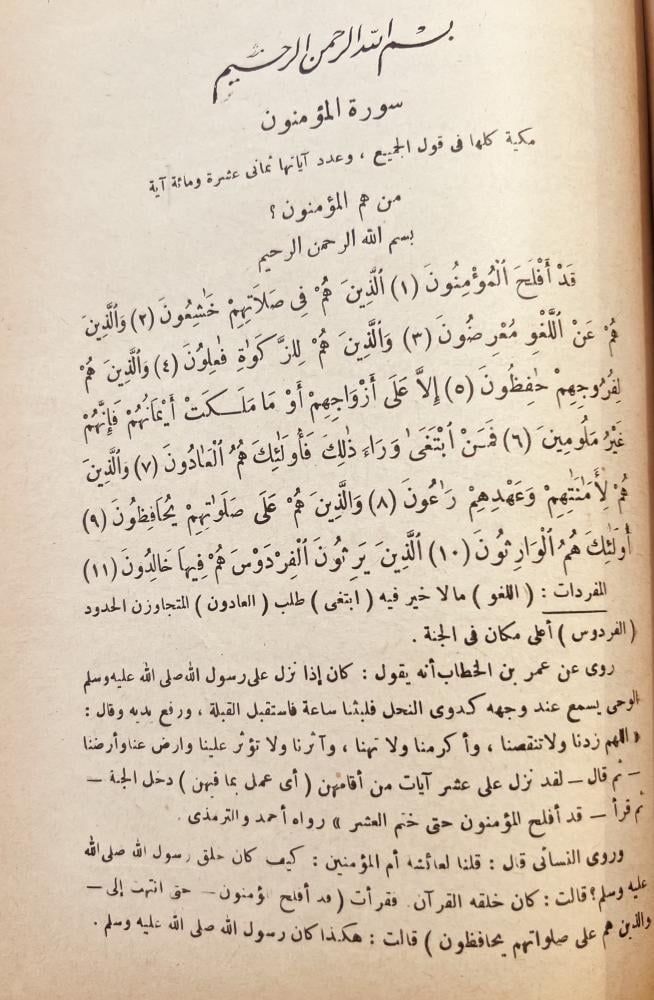 بسم الله الرحمن الرحيم
سورة المؤمنون
مكية كلها فى قول الجميع ، وعدد آياتها ثمانى عشرة ومائة آية
من هم المؤمنون ؟
بسم الله الرحمن الرحيم
قَدْ أَفْلَحَ ٱلْمُؤْمِنُونَ (١) ٱلَّذِينَ هُمْ فِى صَلَاتِهِمْ خَٰشِعُونَ (٢) وَٱلَّذِينَ
هُمْ عَنْ ٱللَّغْوِ مُعْرِضُونَ (٣) وَٱلَّذِينَ هُمْ لِلزَّكَوٰةِ فَٰعِلُونَ (٤) وَٱلَّذِينَ هُمْ
لِفُرُوجِهِمْ حَٰفِظُونَ (٥) إِلاَّ عَلَى أَزْوَاجِهِمْ أَوْ مَا مَلَـكَتْ أَيْمَانُهُمْ فَإِنَّهُمْ
غَيْرُ مَلُومِينَ (٦) فَمَـنْ ٱبْتَغَىٰ وَرَاءَ ذٰلِكَ فَأُولَئِكَ هُمُ ٱلْعَادُونَ (٧) وَٱلَّذِينَ
هُمْ لِأَمَٰنَٰتِهِمْ وَعَهْدِهِمْ رَٰعُونَ (٨) وَٱلَّذِينَ هُمْ عَلَى صَلَوَٰتِهِمْ يُحَافِظُونَ (٩)
أُولَٰئِكَ هُمُ ٱلْوَارِثُونَ (١٠) ٱلَّذِينَ يَرِثُونَ ٱلْفِرْدَوْسَ هُمْ فِيهَا خَالِدُونَ (١١)
المفردات : ( اللغو ) مالا خير فيه ( ابتغى ) طلب ( العادون ) المتجاوزن الحدود
( الفردوس ) أعلى مكان فى الجنة .
روى عن عمر بن الخطاب أنه يقول : كان إذا نزل على رسول الله صلى الله عليه وسلم
الوحى يسمع عند وجهه كدوى النحل فلبثنا ساعة فاستقبل القبلة ، ورفع يديه وقال :
« اللهم زدنا ولا تنقصنا ، وأكرمنا ولا تهنا ، وآثرنا ولا تؤثر علينا وارض عنا وأرضنا
— ثم قال — لقد نزل على عشر آيات من أقامهن ( أى عمل بما فيهن ) دخل الجنة —
ثم قرأ — قد أفلح المؤمنون حتى ختم العشر » رواه أحمد والترمذى .
وروى النسائى قال : قلنا لعائشة أم المؤمنين : كيف كان خلق رسول الله صلى الله
عليه وسلم ؟ قالت : كان خلقه القرآن . فقرأت ( قد أفلح المؤمنون — حتى انتهت إلى —
والذين هم على صلواتهم يحافظون ) قالت : هكذا كان رسول الله صلى الله عليه وسلم .